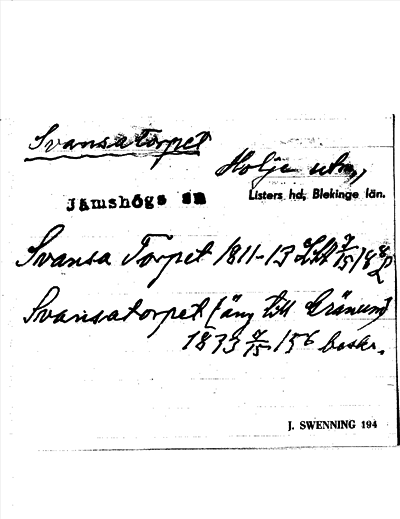 Svansatorpet
Holje utm,
Jämshögs sn
Listers hd, Blekinge län.
Svansa Torpet 1811-13 LSA 7/15 / 98
Svansatorpet (äng till Gränum)
1833 7/15 / 156 beskr.
J. SWENNING 194